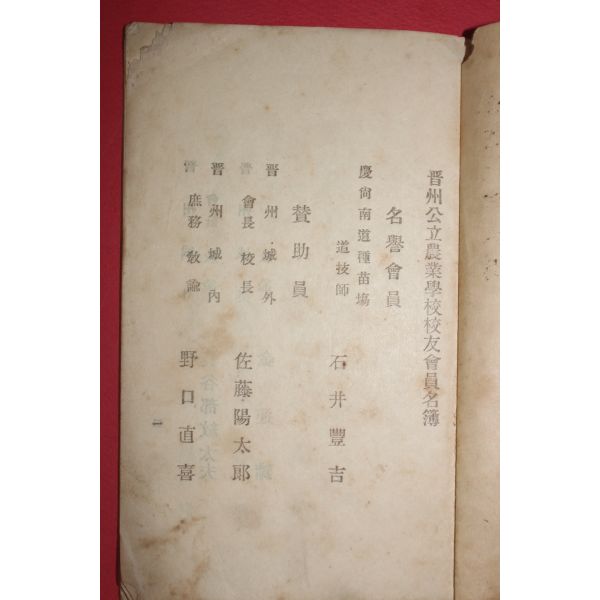 晋州公立農業學校校友會員名簿
名譽會員
慶尙南道種苗塲
道技師
石井豐吉
賛助員
晋州城外
會長校長
佐藤陽太郎
晋州城內
庶務敎諭
野口直喜